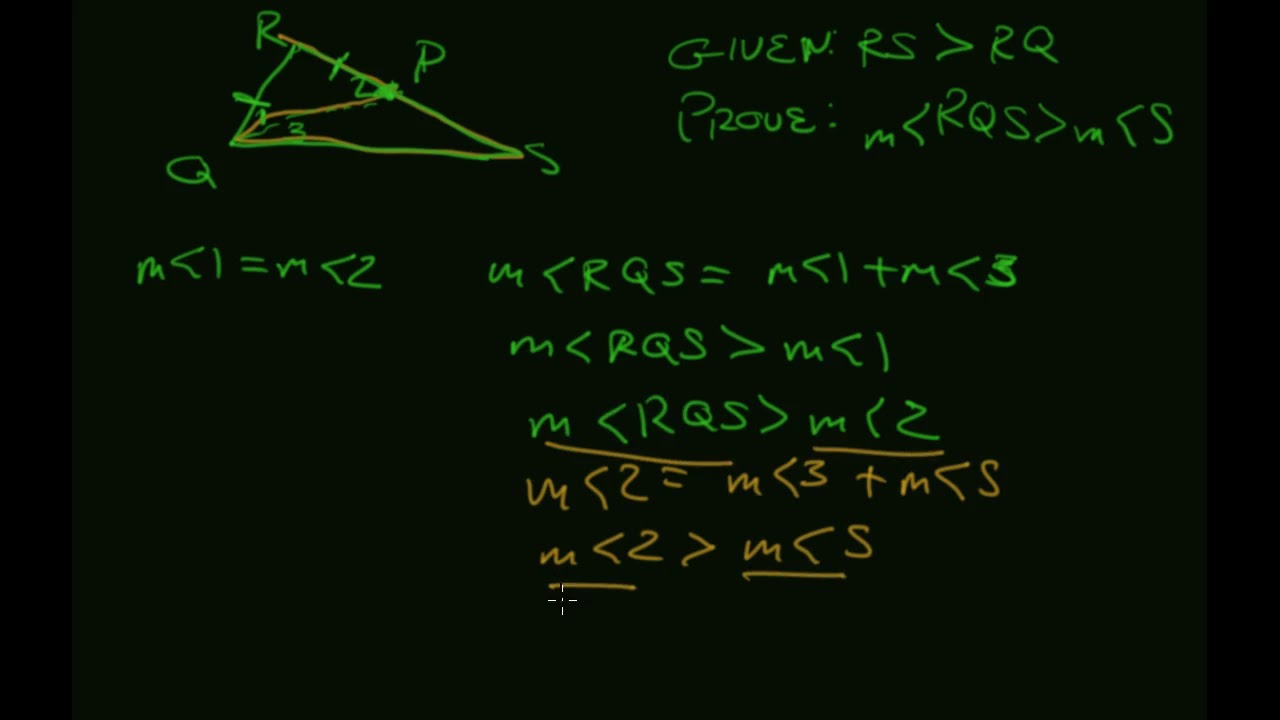 R
P
1
2
3
Q
S
GIVEN: RS > RQ
PROVE: m<RQS > m<S
m<1 = m<2
m<RQS = m<1 + m<3
m<RQS > m<1
m<RQS > m<2
m<2 = m<3 + m<S
m<2 > m<S